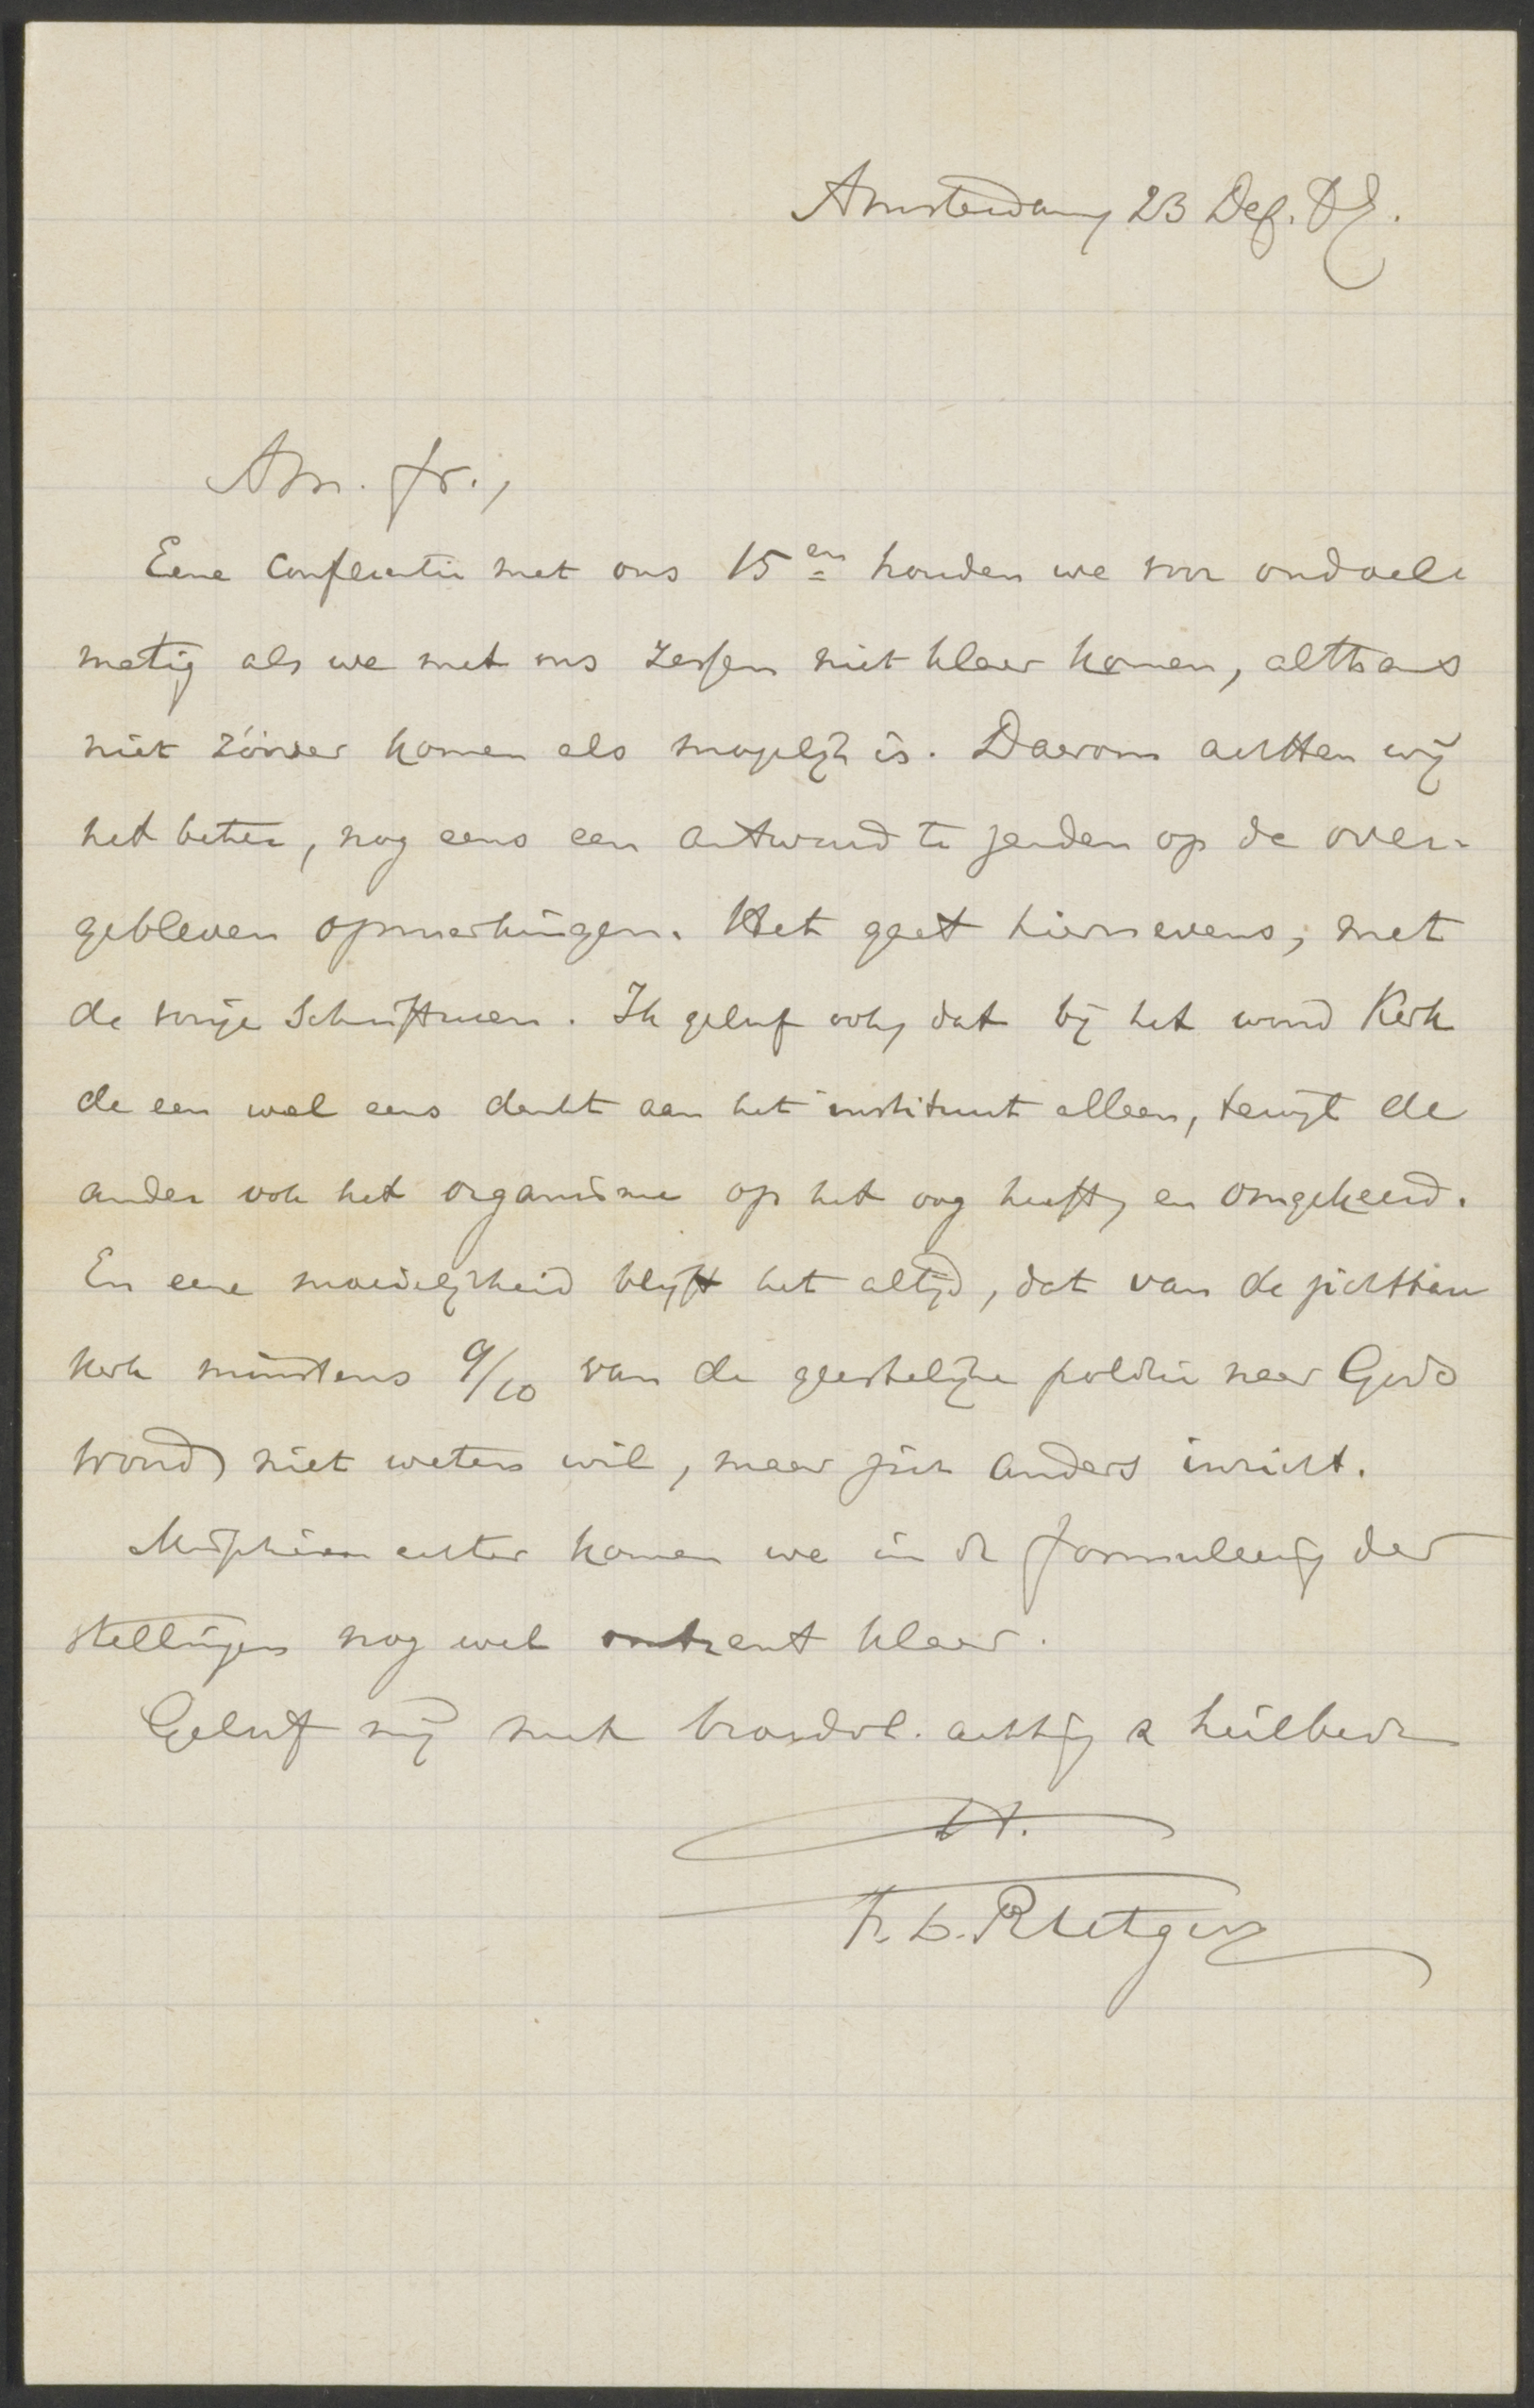 Amsterdam, 23 Dec.
Am. fr.,
Eene conferentie met ons 15en houden we voor ondoel-
matig als we met ons zessen niet klaar komen, althans
niet zóóver komen als mogelijk is. Daarom achtten wij
het beter, nog eens een antwoord te zenden op de over-
gebleven opmerkingen. Het gaat hiernevens, met
de vorige Schrifturen. Ik geloof ook, dat bij het woord Kerk
de een wel eens denkt aan het instituut alleen, terwijl de
ander ook het organisme op het oog heeft, en omgekeerd.
En eene moeielijkheid blijft het altijd, dat van de zichtbare
kerk minstens 9/10 van de geestelijke politie naar Gods
Woord niet weten wil, maar zich anders inricht.
Misschien echter komen we in de formuleering der
stellingen nog wel omtrent klaar.
Geloof mij met broederl. achting & heilbede
tt.
F. L. Rutgers